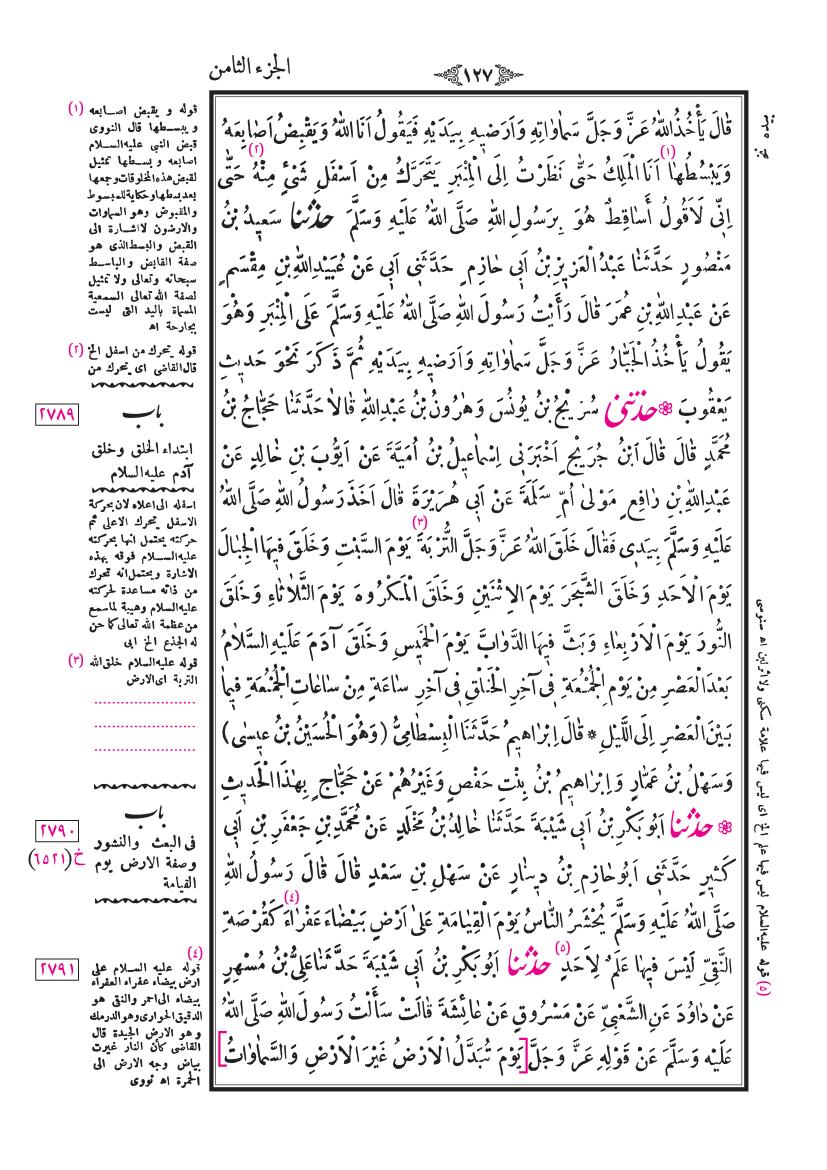 الجزء الثامن
١٢٧
قَالَ يَأْخُذُ اللهُ عَزَّ وَجَلَّ سَمَاوَاتِهِ وَاَرَضِيهِ بِيَدَيْهِ فَيَقُولُ اَنَا اللهُ وَيَقْبِضُ اَصَابِعَهُ (١)
وَيَبْسُطُهَا اَنَا الْمَلِكُ حَتَّى نَظَرْتُ اِلَى الْمِنْبَرِ يَتَحَرَّكُ مِنْ اَسْفَلِ شَىْءٍ مِنْهُ (٢) حَتَّى
اِنِّى لَاَقُولُ أَسَاقِطٌ هُوَ بِرَسُولِ اللهِ صَلَّى اللهُ عَلَيْهِ وَسَلَّمَ حَدَّثَنَا سَعِيدُ بْنُ
مَنْصُورٍ حَدَّثَنَا عَبْدُ الْعَزِيزِ بْنُ اَبِى حَازِمٍ حَدَّثَنِى اَبِى عَنْ عُبَيْدِ اللهِ بْنِ مِقْسَمٍ
عَنْ عَبْدِ اللهِ بْنِ عُمَرَ قَالَ رَأَيْتُ رَسُولَ اللهِ صَلَّى اللهُ عَلَيْهِ وَسَلَّمَ عَلَى الْمِنْبَرِ وَهُوَ
يَقُولُ يَأْخُذُ الْجَبَّارُ عَزَّ وَجَلَّ سَمَاوَاتِهِ وَاَرَضِيهِ بِيَدَيْهِ ثُمَّ ذَكَرَ نَحْوَ حَدِيثِ
يَعْقُوبَ ۞ حَدَّثَنِى سُرَيْجُ بْنُ يُونُسَ وَهٰرُونُ بْنُ عَبْدِ اللهِ قَالَا حَدَّثَنَا حَجَّاجُ بْنُ
مُحَمَّدٍ قَالَ قَالَ ابْنُ جُرَيْجٍ اَخْبَرَنِى اِسْمَاعِيلُ بْنُ اُمَيَّةَ عَنْ اَيُّوبَ بْنِ خَالِدٍ عَنْ
عَبْدِ اللهِ بْنِ رَافِعٍ مَوْلَى اُمِّ سَلَمَةَ عَنْ اَبِى هُرَيْرَةَ قَالَ اَخَذَ رَسُولُ اللهِ صَلَّى اللهُ
عَلَيْهِ وَسَلَّمَ بِيَدِى فَقَالَ خَلَقَ اللهُ عَزَّ وَجَلَّ التُّرْبَةَ (٣) يَوْمَ السَّبْتِ وَخَلَقَ فِيهَا الْجِبَالَ
يَوْمَ الْاَحَدِ وَخَلَقَ الشَّجَرَ يَوْمَ الْاِثْنَيْنِ وَخَلَقَ الْمَكْرُوهَ يَوْمَ الثَّلَاثَاءِ وَخَلَقَ
النُّورَ يَوْمَ الْاَرْبِعَاءِ وَبَثَّ فِيهَا الدَّوَابَّ يَوْمَ الْخَمِيسِ وَخَلَقَ آدَمَ عَلَيْهِ السَّلَامُ
بَعْدَ الْعَصْرِ مِنْ يَوْمِ الْجُمُعَةِ فِى آخِرِ الْخَلْقِ فِى آخِرِ سَاعَةٍ مِنْ سَاعَاتِ الْجُمُعَةِ فِيمَا
بَيْنَ الْعَصْرِ اِلَى اللَّيْلِ * قَالَ اِبْرَاهِيمُ حَدَّثَنَا الْبِسْطَامِىُّ (وَهُوَ الْحُسَيْنُ بْنُ عِيسٰى)
وَسَهْلُ بْنُ عَمَّارٍ وَاِبْرَاهِيمُ بْنُ بِنْتِ حَفْصٍ وَغَيْرُهُمْ عَنْ حَجَّاجٍ بِهٰذَا الْحَدِيثِ
۞ حَدَّثَنَا اَبُو بَكْرِ بْنُ اَبِى شَيْبَةَ حَدَّثَنَا خَالِدُ بْنُ مَخْلَدٍ عَنْ مُحَمَّدِ بْنِ جَعْفَرِ بْنِ اَبِى
كَثِيرٍ حَدَّثَنِى اَبُو حَازِمِ بْنُ دِينَارٍ عَنْ سَهْلِ بْنِ سَعْدٍ قَالَ قَالَ رَسُولُ اللهِ
صَلَّى اللهُ عَلَيْهِ وَسَلَّمَ يُحْشَرُ النَّاسُ يَوْمَ الْقِيَامَةِ عَلَى اَرْضٍ بَيْضَاءَ عَفْرَاءَ (٤) كَقُرْصَةِ
النَّقِىِّ لَيْسَ فِيهَا عَلَمٌ لِاَحَدٍ (٥) حَدَّثَنَا اَبُو بَكْرِ بْنُ اَبِى شَيْبَةَ حَدَّثَنَا عَلِىُّ بْنُ مُسْهِرٍ
عَنْ دَاوُدَ عَنِ الشَّعْبِىِّ عَنْ مَسْرُوقٍ عَنْ عَائِشَةَ قَالَتْ سَأَلْتُ رَسُولَ اللهِ صَلَّى اللهُ
عَلَيْهِ وَسَلَّمَ عَنْ قَوْلِهِ عَزَّ وَجَلَّ [يَوْمَ تُبَدَّلُ الْاَرْضُ غَيْرَ الْاَرْضِ وَالسَّمٰوَاتُ]
(١) قوله و يقبض اصابعه
ويبسطها قال النووى
قبض النبى عليه السلام
اصابعه وبسطها تمثيل
لقبض هذه المخلوقات وجمعها
بعد بسطها وحكاية للمبسوط
والمقبوض وهو السماوات
والارضون لا اشارة الى
القبض والبسط الذى هو
صفة القابض والباسط
سبحانه وتعالى ولا تمثيل
لصفة الله تعالى السمعية
المسماة باليد التى ليست
بجارحة اه
(٢) قوله يتحرك من اسفل الخ
قال القاضى اى يتحرك من
٢٧٨٩
باب
ابتداء الخلق وخلق
آدم عليه السلام
اسفله الى اعلاه لان بحركة
الاسفل يتحرك الاعلى ثم
حركته يحتمل انها بحركته
عليه السلام فوقه بهذه
الاشارة ويحتمل انه تحرك
من ذاته مساعدة لحركته
عليه السلام وهيبة لما سمع
من عظمة الله تعالى كما حن
له الجذع الخ ابى
(٣) قوله عليه السلام خلق الله
التربة اى الارض
باب
٢٧٩٠
فى البعث والنشور
خ (٦٥٢١)
وصفة الارض يوم
القيامة
(٤)
قوله عليه السلام على
ارض بيضاء عفراء العفراء
٢٧٩١
بيضاء الى احمر والنقى هو
الدقيق الحوارى وهو الدرمك
وهو الارض الجيدة قال
القاضى كأن النار غيرت
بياض وجه الارض الى
الحمرة اه نووى
بيده نخ
(٥) قوله عليه السلام ليس فيها علم الخ اى ليس فيها علامة سكنى ولا اثر ابن اه سنوسى